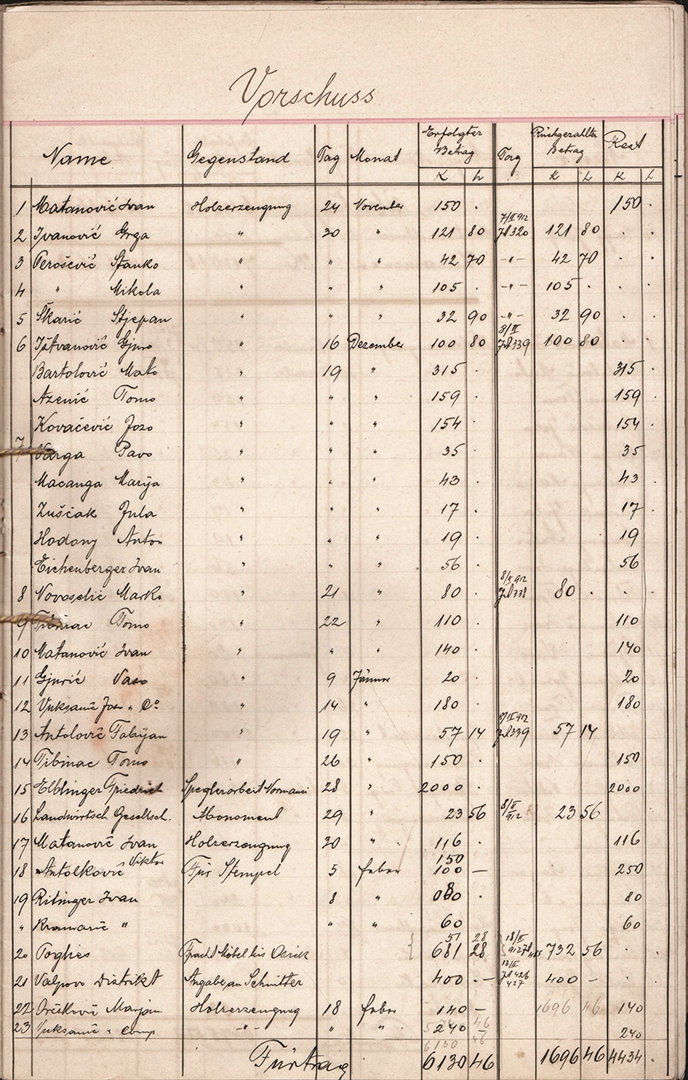 Vorschuss
Name Gegenstand Tag Monat Erfolgter Betrag Tag Rückgezahlter Betrag Rest
K h K h K h
1 Matanović Ivan Holzerzeugung 24 November 150 . 150 .
2 Ivanović Grga " 30 " 121 80 121 80 . .
3 Perošević Stanko " " " 42 70 -"- 42 70 . .
4 " Mikola " " " 105 . -"- 105 . . .
5 Škarić Stjepan " " " 32 90 -"- 32 90 . .
6 Ištvanović Gjuro " 16 Dezember 100 80 100 80 . .
Bartolović Mato " 19 " 315 . 315
Azenić Tomo " " " 159 . 159
Kovačević Jozo " " " 154 . 154
7 Varga Pavo " " " 35 . 35
Macanga Marija " " " 43 . 43
Zuščak Jula " " " 17 . 17
Hodony Anton " " " 19 . 19
Eichenberger Ivan " " " 56 . 56
8 Novoselić Marko " 21 " 80 . 80 . . .
9 Tomo " 22 " 110 . 110
10 Matanović Ivan " " " 140 . 140
11 Gjurić Vaso " 9 Jänner 20 . 20
12 Vuksanić Joso & Co " 14 " 180 . 180
13 Antolović Fabijan " 19 " 57 14 57 14
14 Tibinac Tomo " 26 " 150 . 150
15 Elblinger Friedrich Spenglerarbeit Normanci 28 " 2000 . 2000
16 Landwirtsch. Gesellsch. Monoment 29 " 23 56 8/II 912 23 56 . .
17 Matanović Ivan Holzerzeugung 30 " 116 116
18 Antolković Viktor Für Stempel 5 feber 150 100 — 250
19 Ritinger Ivan 8 " 80 80
" Kramarić " " " 60 60
20 Fracht Möbel bis Osiek 51 28 681 28 18/II 732 56 . .
21 Valpovo Distrikt Angabe an Schnitter 400 — 13/II 400 — .
22 Marjan Holzerzeugung 18 feber 140 — 1696 46 140
23 Vuksanić & Comp -"- " " 240 46 240
6130 46
Fürtrag 6130 46 1696 46 4434 .